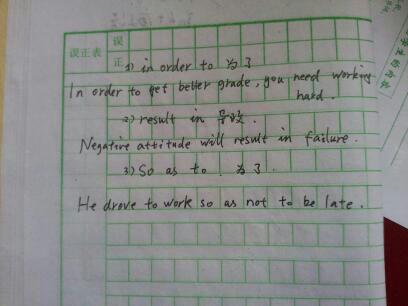 误正表
误
正
1) in order to 为了
In order to get better grade, you need working
hard.
2) result in 导致.
Negative attitude will result in failure.
3) So as to 为了.
He drove to work so as not to be late.